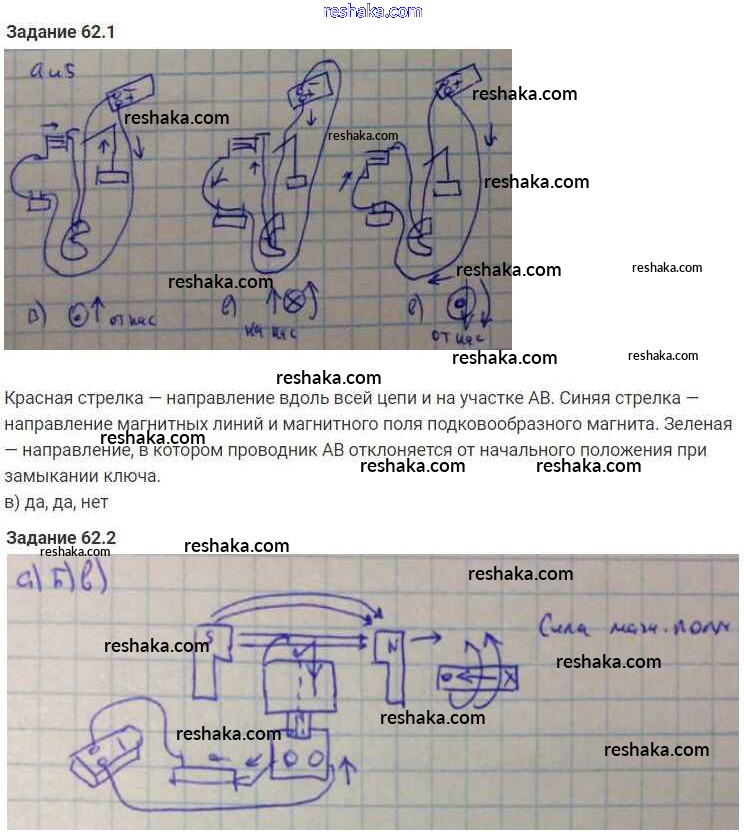 reshaka.com
Задание 62.1
а и б
reshaka.com
reshaka.com
reshaka.com
reshaka.com
reshaka.com
reshaka.com
reshaka.com
в) от нас
на нас
от нас
reshaka.com
reshaka.com
reshaka.com
Красная стрелка — направление вдоль всей цепи и на участке АВ. Синяя стрелка —
направление магнитных линий и магнитного поля подковообразного магнита. Зеленая
reshaka.com
— направление, в котором проводник АВ отклоняется от начального положения при
reshaka.com
замыкании ключа.
reshaka.com
в) да, да, нет
Задание 62.2
reshaka.com
reshaka.com
а) б) в)
reshaka.com
S
N
Сила магн. поля
reshaka.com
reshaka.com
reshaka.com
reshaka.com
reshaka.com